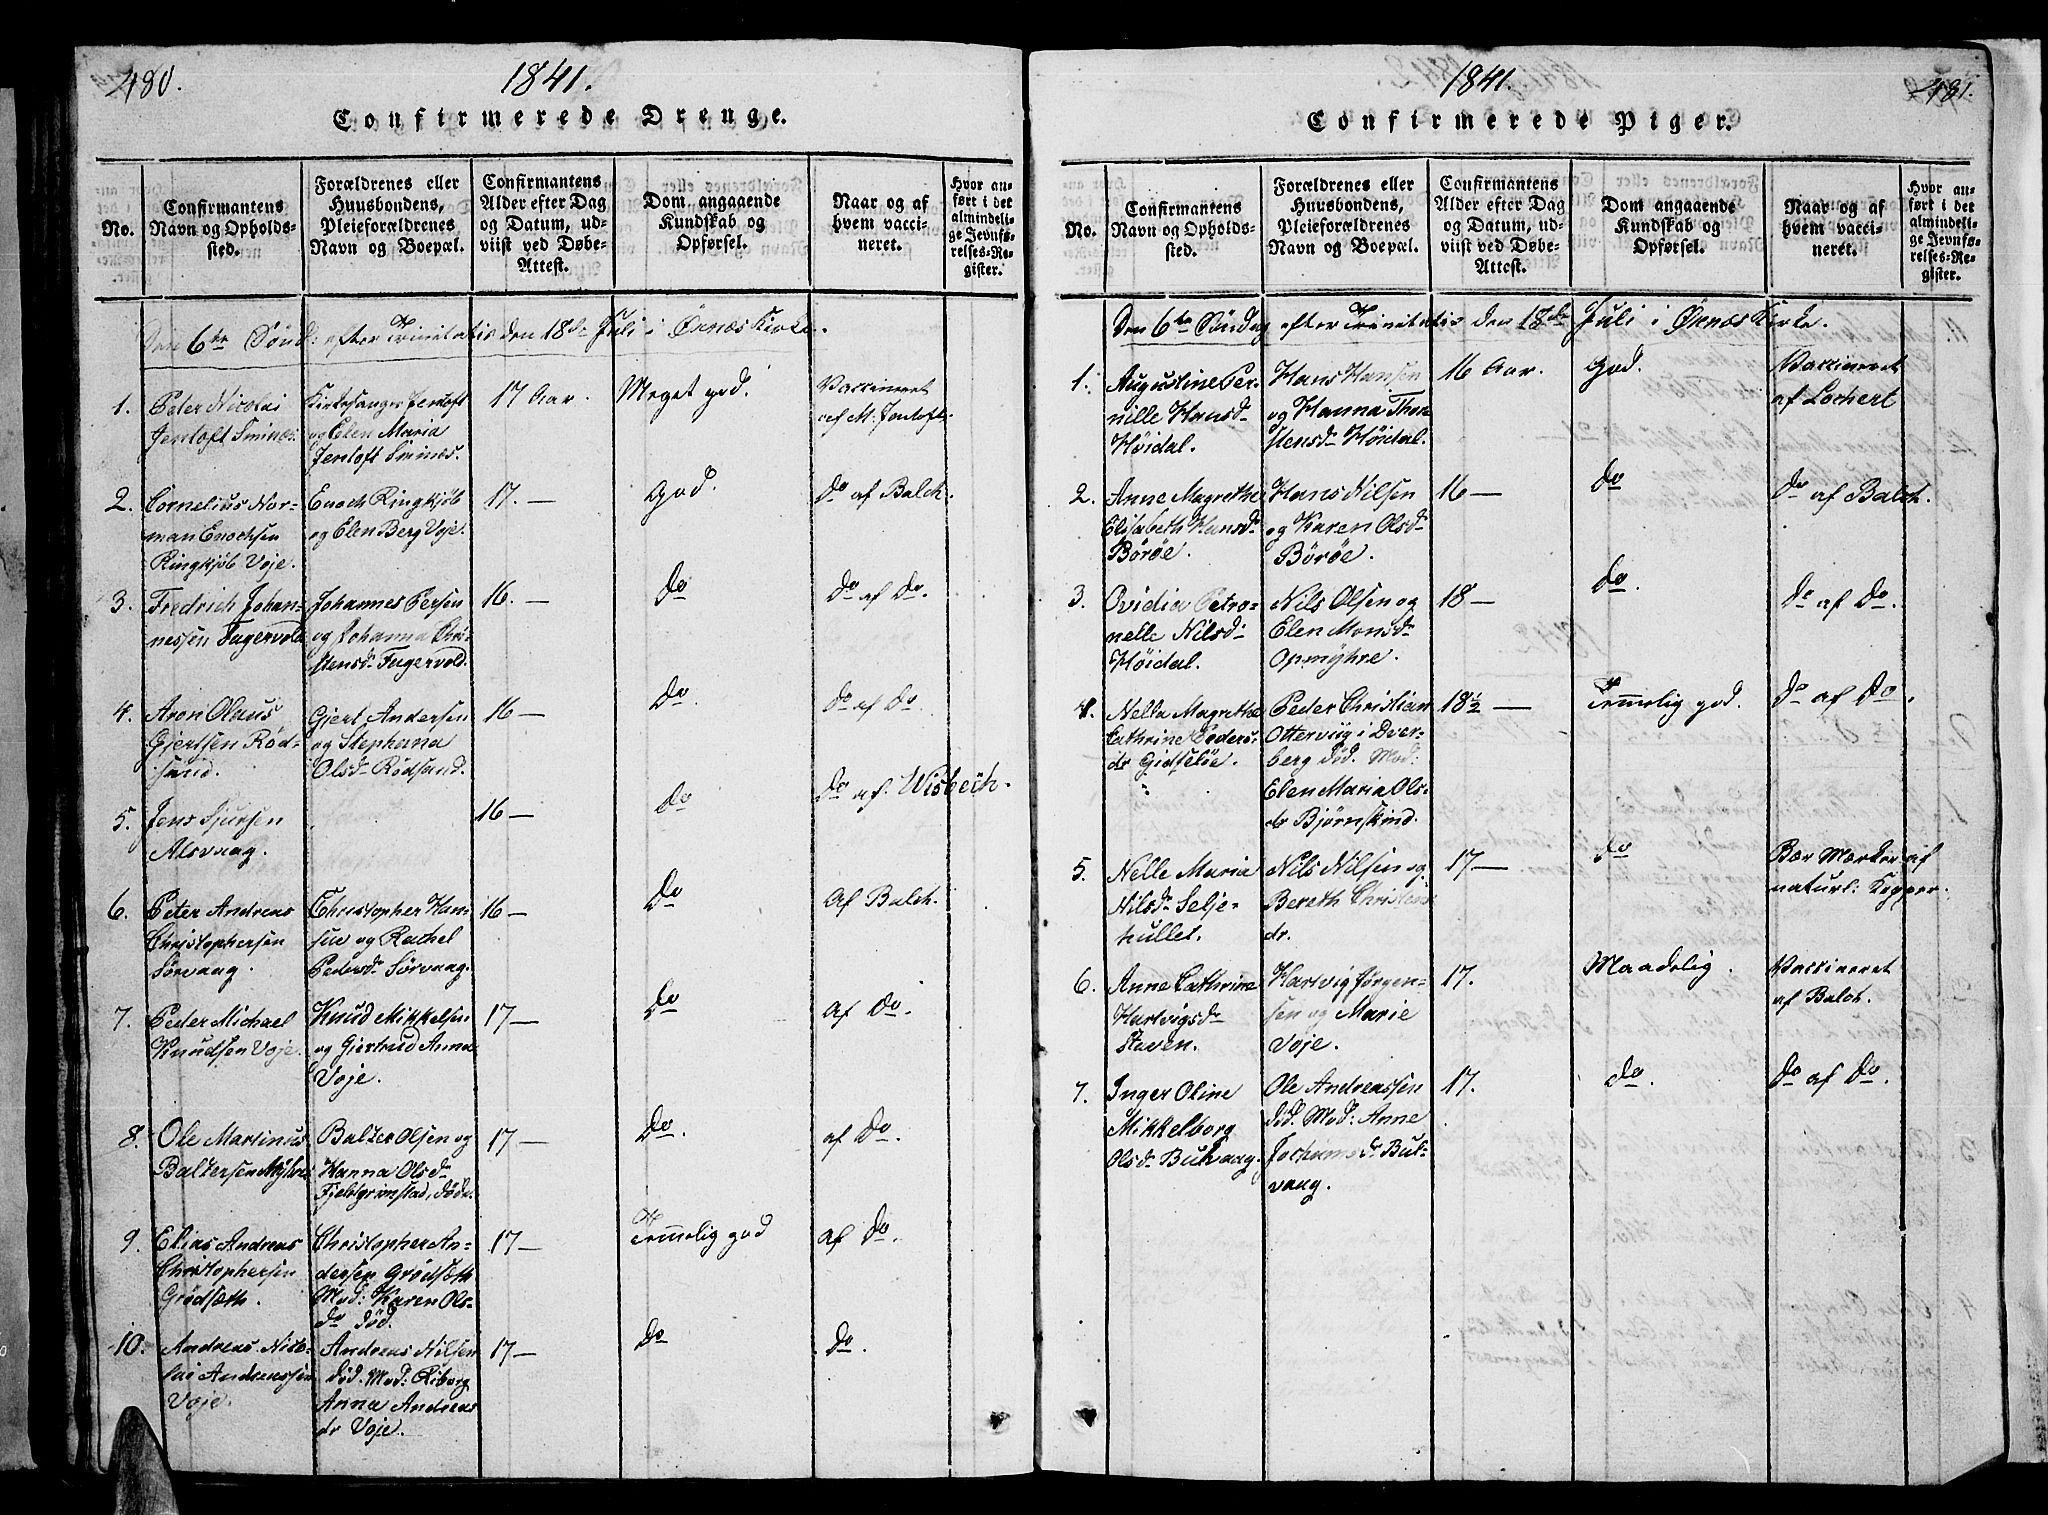 480.
1841.
Confirmerede Drenge.
No.
Confirmantens
Navn og Opholds-
sted.
Forældrenes eller
Huusbondens,
Pleieforældrenes
Navn og Boepæl.
Confirmantens
Alder efter Dag
og Datum, ud-
viist ved Døbe-
Attest.
Dom angaaende
Kundskab og
Opførsel.
Naar og af
hvem vacci-
neret.
Hvor an-
ført i det
almindeli-
ge Jevnfø-
relses-Re-
gister.
Den 6te Sönd: efter Trinitatis den 18de Juli i Ørnæs Kirke.
1.
Peter Nicolai
Jentoft Smines.
Kirkesanger Jentoft
og Elen Maria
Jentoft Smines.
17 Aar.
Meget god.
Vaccineret
af M: Jentoft.
2.
Cornelius Nor-
man Enochsen
Ringkjöb Voje.
Enoch Ringkjöb
og Elen Berg Voje.
17. —
God.
Do af Balch.
3.
Fredrich Johan-
nessen Fagervold
Johannes Persen
og Johanna Chri-
stensdr Fagervold.
16. —
Do
Do af Do.
4.
Aron Olaus
Gjertsen Röd-
sand.
Gjert Andersen
og Stephana
Olsdr Rödsand.
16 —
Do.
Do af Do
5.
Jens Sjursen
Alsvaag.
16 —
Do
Do af Wisbech.
6.
Peter Andreas
Christophersen
Sörvaag.
Christopher Han-
sen og Rachel
Pedersdr Sörvaag.
16 —
Do.
af Balch.
7.
Peder Michael
Knudsen Voje.
Knud Mikkelsen
og Giertrud Anna
Voje.
17 —
Do
af Do.
8.
Ole Martinus
Baltersen Myhre
Balzer Olsen og
Hanna Olsdr
Fjeldgrimstad, döde.
17 —
Do.
af Do.
9.
Elias Andreas
Christophersen
Grödsæth.
Christopher An-
dersen Grödsæth
Mod: Karen Ols-
dr död.
17 —
Temmelig god
af Do.
10.
Andreas Nico-
lai Andreassen
Voje.
Andreas Nilsen
död. Mod: Riborg
Anna Andreas
dr Voje.
17 —
Do
Do.
1841.
481.
Confirmerede Piger.
No.
Confirmantens
Navn og Opholds-
sted.
Forældrenes eller
Huusbondens,
Pleieforældrenes
Navn og Boepæl.
Confirmantens
Alder efter Dag
og Datum, ud-
viist ved Døbe-
Attest.
Dom angaaende
Kundskab og
Opførsel.
Naar og af
hvem vacci-
neret.
Hvor an-
ført i det
almindeli-
ge Jevnfø-
relses-Re-
gister.
Den 6te Söndag efter Trinitatis den 18de Juli i Ørnæs Kirke.
1.
Augustine Per-
nille Hansdr
Höidal.
Hans Hansen
og Hanna Thor-
stensdr Höidal.
16 Aar.
God.
Vaccineret
af Lochert
2.
Anne Magrethe
Elisabeth Hansdr
Böröe.
Hans Nilsen
og Karen Olsdr
Böröe.
16 —
Do
Do af Balch.
3.
Ovidia Petro-
nelle Nilsdr
Höidal.
Nils Olsen og
Elen Monsdr
Opmyhre.
18 —
Do.
Do af Do.
4.
Nella Magrethe
Cathrine Peders-
dr Gidslöe.
Peder Christian
Otterviig i Dver-
berg död. Mod:
Elen Maria Ols-
dr Björnskind.
18½ —
Temmelig god.
Do af Do.
5.
Nelle Maria
Nilsdr Selje-
hullet.
Nils Nilsen og
Bereth Christens
dr.
17 —
Do
Bær Mærker af
naturl: Kopper.
6.
Anne Cathrine
Hartvigsdr
Staven.
Hartvig Jörgen-
sen og Marie
Voje.
17.
Maadelig.
Vaccineret
af Balch.
7.
Inger Oline
Mikkelborg
Olsdr Buhvaag.
Ole Andreassen
död. Mod: Anne
Jochumsdr Buh-
vaag.
17.
Do.
Do af Do.